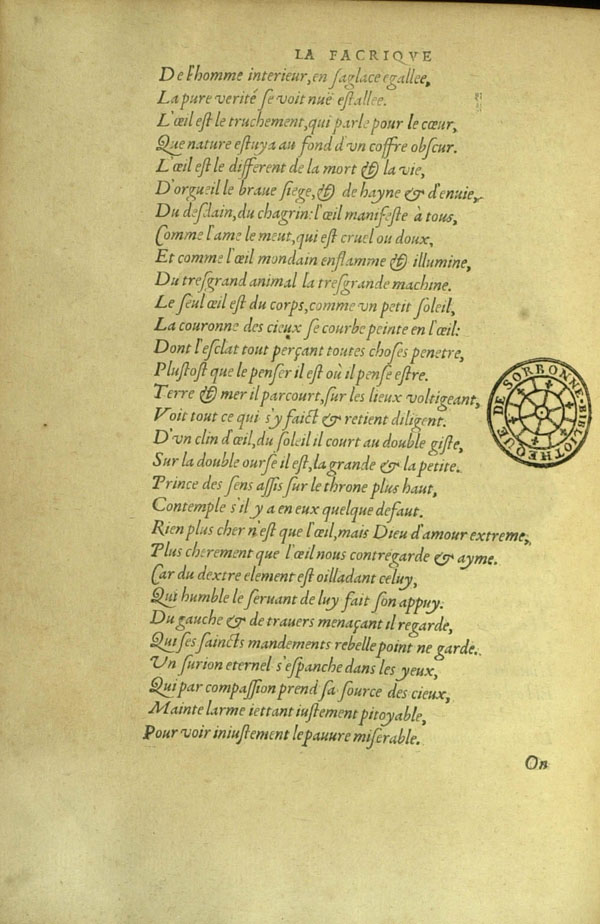 LA FACRIQVE
De l'homme interieur, en saglace egallee,
La pure verité se voit nuë estallee.
L'œil est le truchement, qui parle pour le cœur,
Que nature estuya au fond d'vn coffre obscur.
L'œil est le different de la mort & la vie,
D'orgueil le braue siege, & de hayne & d'enuie,
Du desdain, du chagrin: l'œil manifeste à tous,
Comme l'ame le meut, qui est cruel ou doux,
Et comme l'œil mondain enflamme & illumine,
Du tresgrand animal la tresgrande machine.
Le seul œil est du corps, comme vn petit soleil,
La couronne des cieux se courbe peinte en l'œil:
Dont l'esclat tout perçant toutes choses penetre,
Plustost que le penser il est où il pense estre.
Terre & mer il parcourt, sur les lieux voltigeant,
Voit tout ce qui s'y faict & retient diligent.
D'vn clin d'œil, du soleil il court au double giste,
Sur la double ourse il est, la grande & la petite.
Prince des sens assis sur le throne plus haut,
Contemple s'il y a en eux quelque defaut.
Rien plus cher n'est que l'œil, mais Dieu d'amour extreme,
Plus cherement que l'œil nous contregarde & ayme.
Car du dextre element est oilladant celuy,
Qui humble le seruant de luy fait son appuy.
Du gauche & de trauers menaçant il regarde,
Qui ses saincts mandements rebelle point ne garde.
Un surion eternel s'espanche dans les yeux,
Qui par compassion prend sa source des cieux,
Mainte larme iettant iustement pitoyable,
Pour voir iniustement le pauure miserable.
On
BIBLIOTHEQUE DE SORBONNE